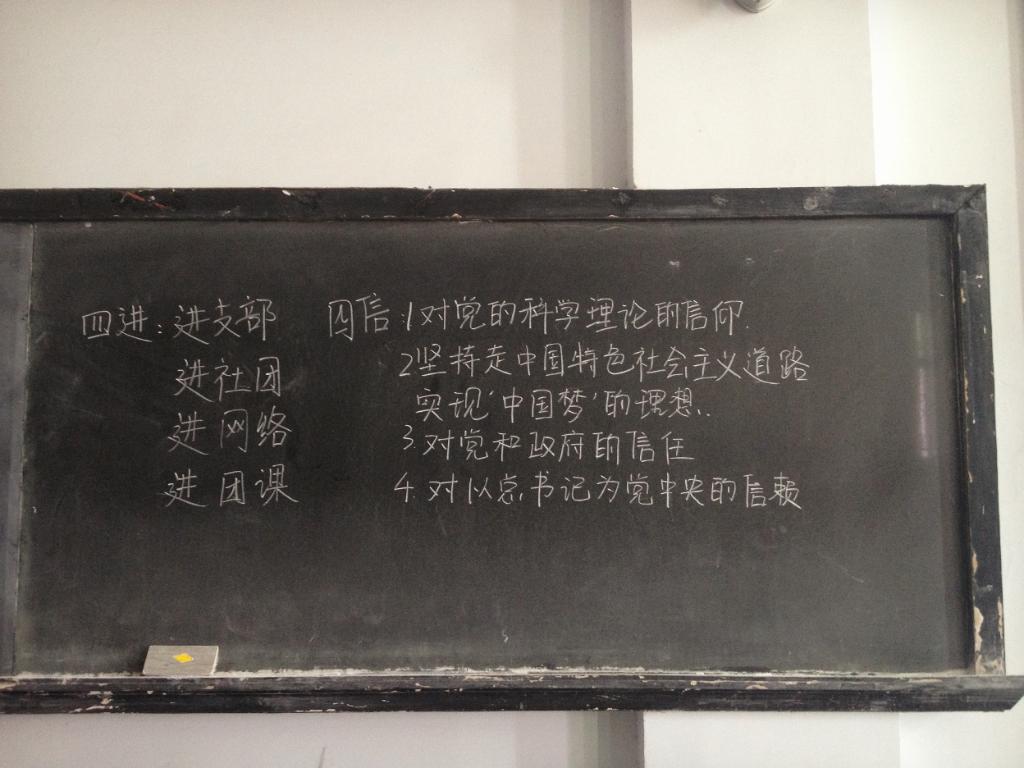 四进：进支部 四信：1对党的科学理论的信仰.
进社团 2坚持走中国特色社会主义道路
实现‘中国梦’的理想..
进网络 3对党和政府的信任
进团课 4.对以总书记为党中央的信赖